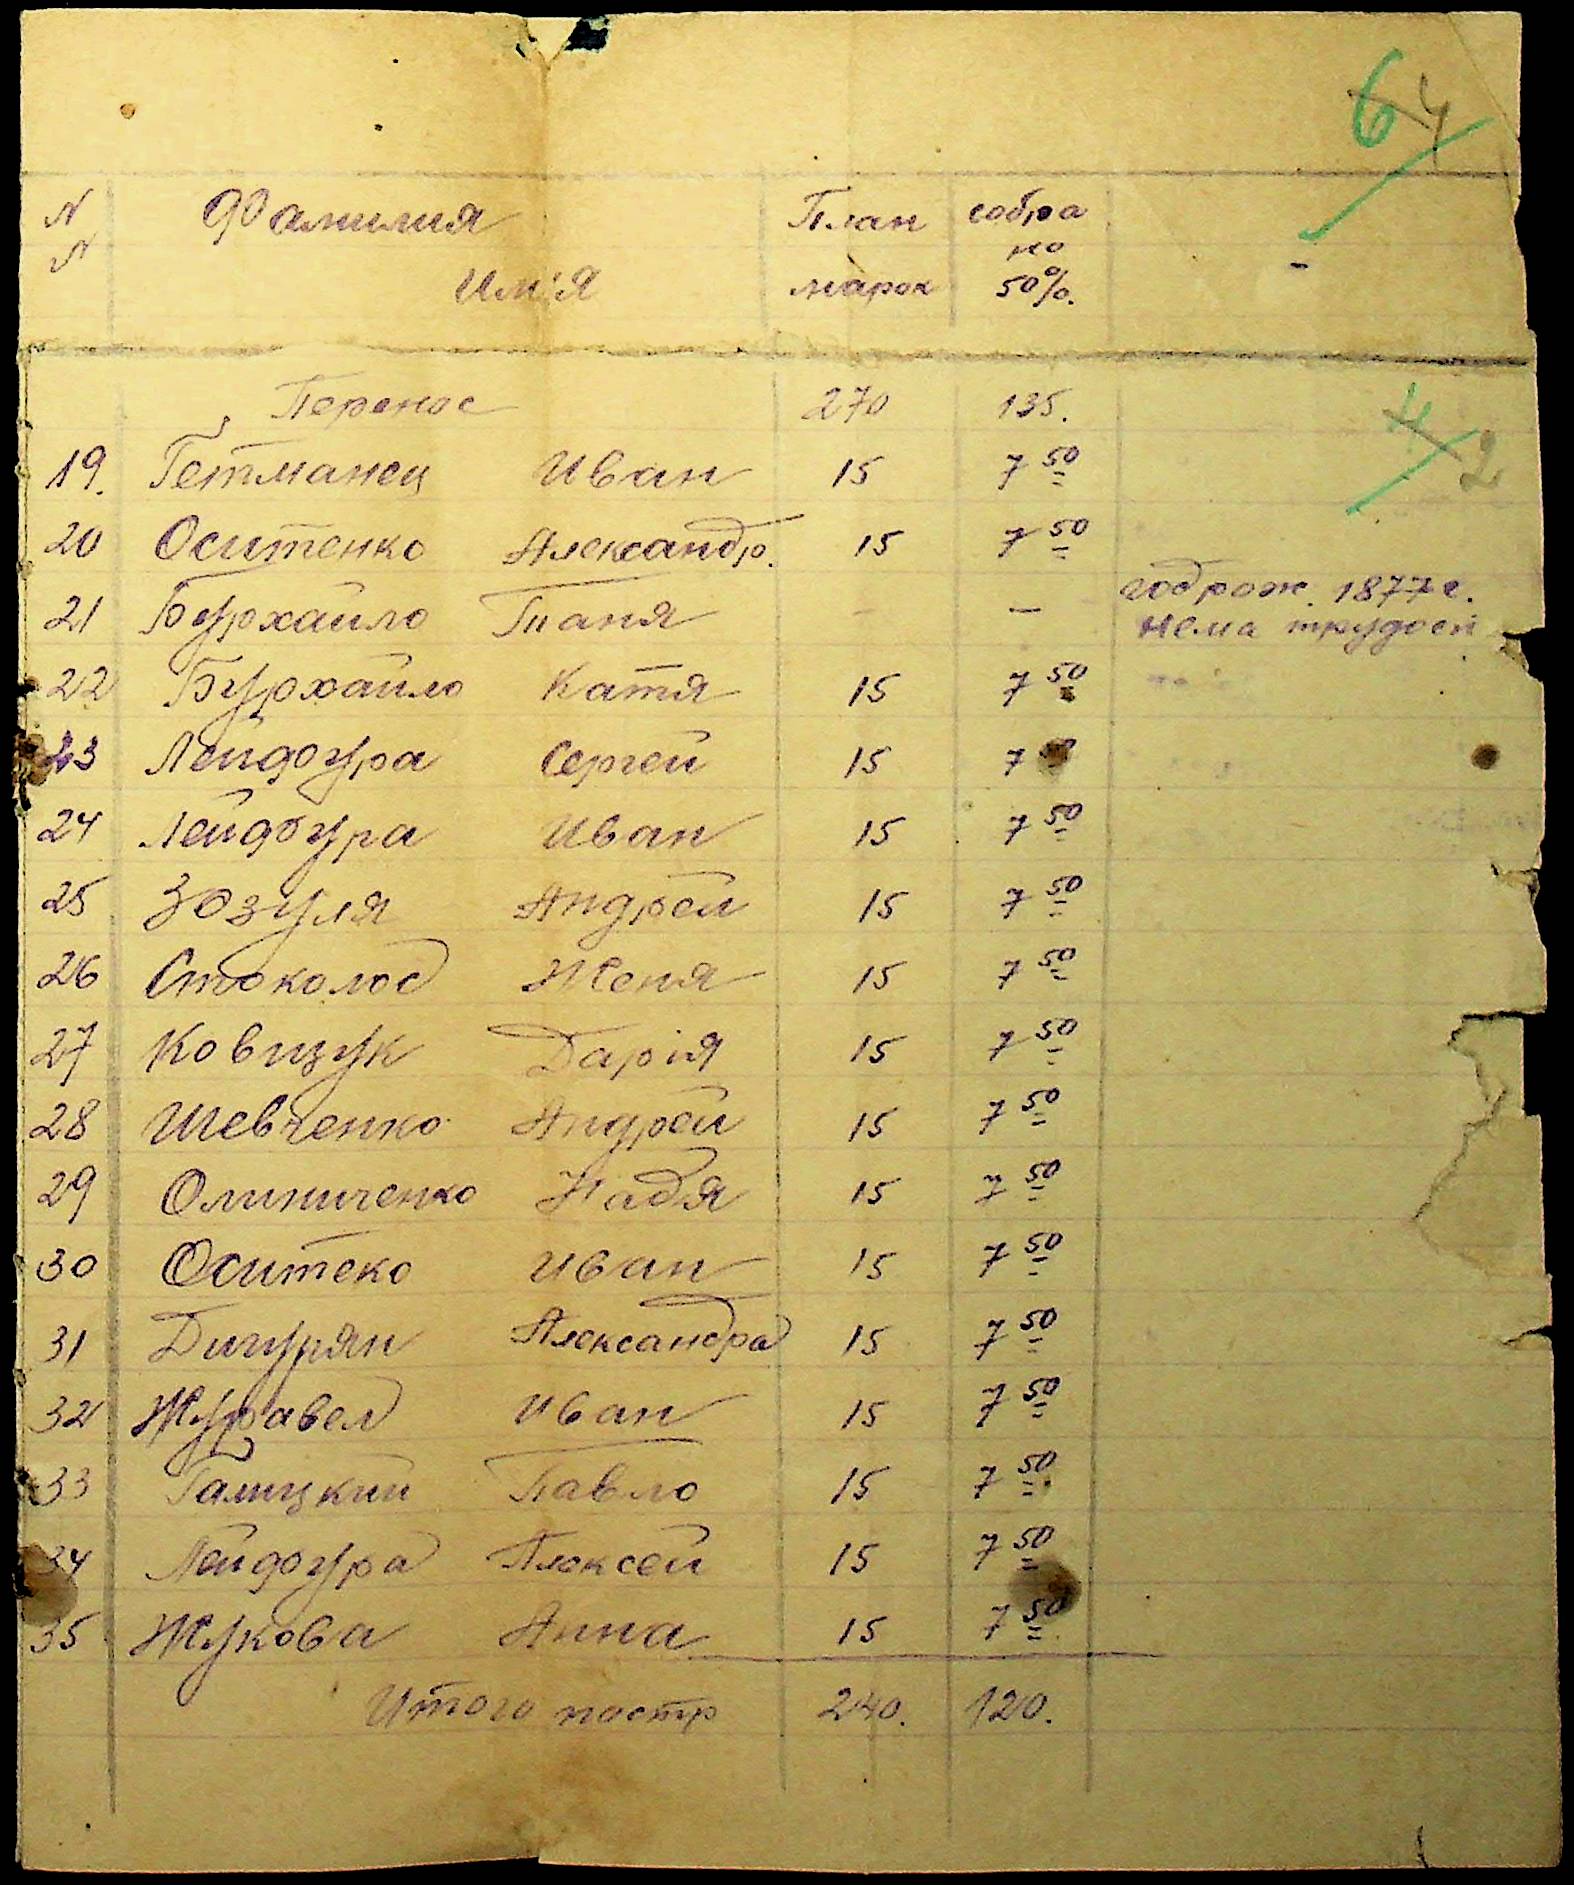 64
N Фамилия План собра
N но
Им'я марок 50%.
Перенос 270 135.
42
19. Гетманец Иван 15 7 50
20 Оситенко Александр. 15 7 50
21 Бурхайло Таня — — год рож. 1877 г.
нема трудосп
22 Бурхайло Катя 15 7 50
23 Лейдогура Сергей 15 7
24 Лейдогура Иван 15 7 50
25 Зозуля Андрей 15 7 50
26 Стоколос Женя 15 7 50
27 Ковщук Дарія 15 7 50
28 Шевченко Андрей 15 7 50
29 Олиниченко Надя 15 7 50
30 Оситеко Иван 15 7 50
31 Дигурян Александра 15 7 50
32 Журавел Иван 15 7 50
33 Галицкий Павло 15 7 50
34 Лейдогура Алексей 15 7 50
35 Жукова Анна 15 7 50
Итого постр 240. 120.